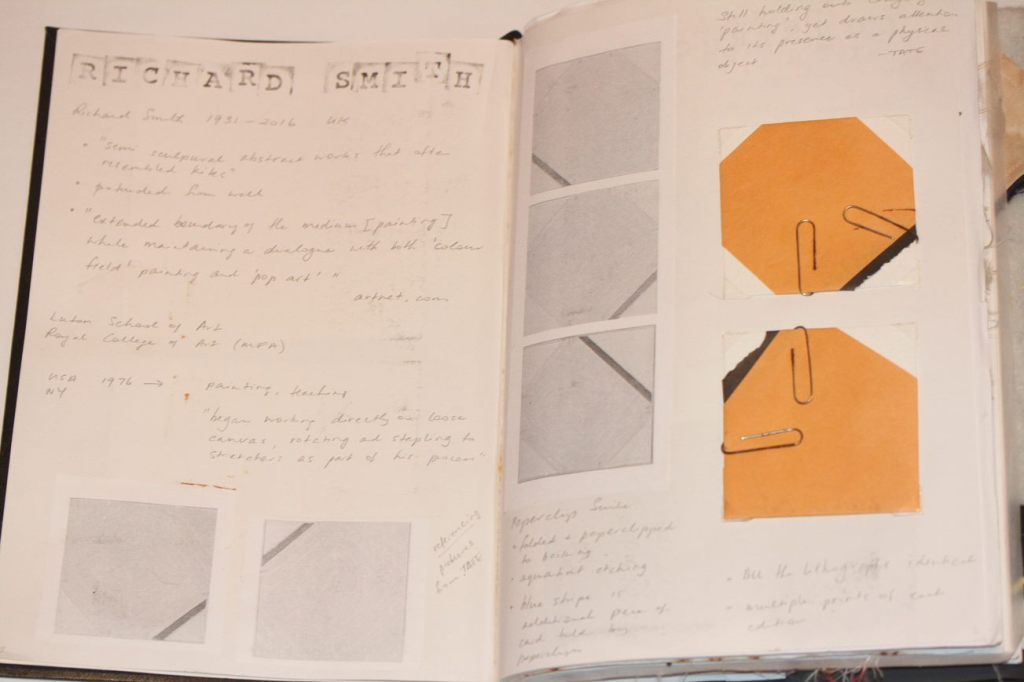 RICHARD SMITH
Richard Smith 1931-2016 UK
• "semi sculptural abstract works that often
resembled kites"
• protruded from wall
• "extended boundary of the medium [painting]
while maintaining a dialogue with both 'colour
field' painting and 'pop art'"
artnet.com
Luton School of Art
Royal College of Art (MFA)
USA 1976 → painting, teaching
NY
"began working directly on loose
canvas, and stapling to
stretchers as part of his process"
from TATE
Still holding onto
'painting', yet draws attention
to its presence as a physical
object
-TATE
Paperclips Suite
• folded + paperclipped
to backing
• aquatint etching
• blue stripe is
additional piece of
card held by
paperclips
• All the lithographs identical
• multiple prints of each
edition